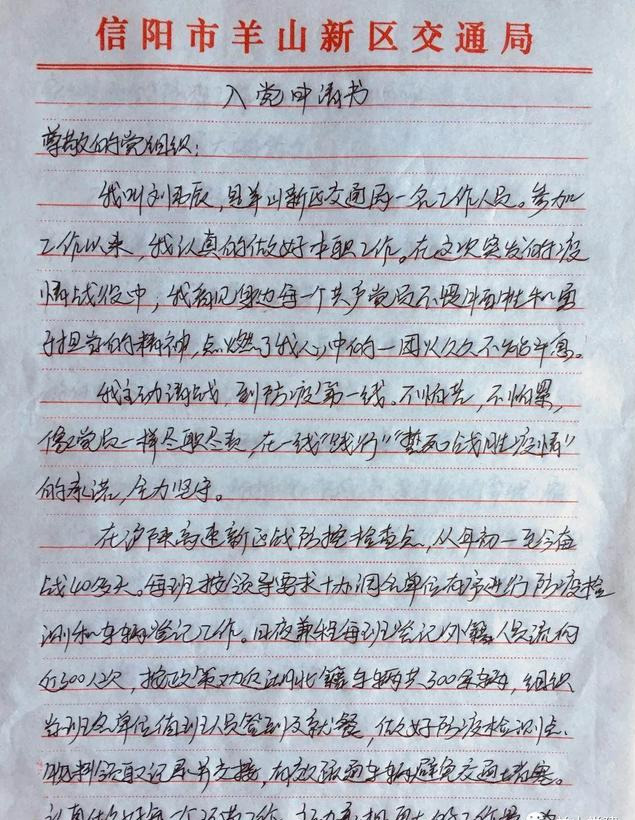 信阳市羊山新区交通局
入党申请书
尊敬的党组织：
我叫刘辰，是羊山新区交通局一名工作人员。参加
工作以来，我认真的做好本职工作。在这次突发的疫
情战役中，我看见身边每一个共产党员不畏牺牲和勇
于担当的精神，点燃了我心中的一团火久久不能平息。
我主动请战，到防疫第一线。不怕苦，不怕累，
像党员一样尽职尽责，在一线"践行""誓死战胜疫情"
的承诺，全力坚守。
在沪陕高速新区站防控检查点，从年初一至今奋
战40多天。每班按领导要求协调各单位有序进行防疫检
测和车辆登记工作。日夜兼程每班登记外籍人员流向
近300人次，按政策劝返湖北籍车辆共300余辆，组织
当班各单位值班人员签到及就餐，做好防疫检测点
物料领取记录并交接，有效疏通车辆避免交通堵塞。
认真做好每一个环节工作